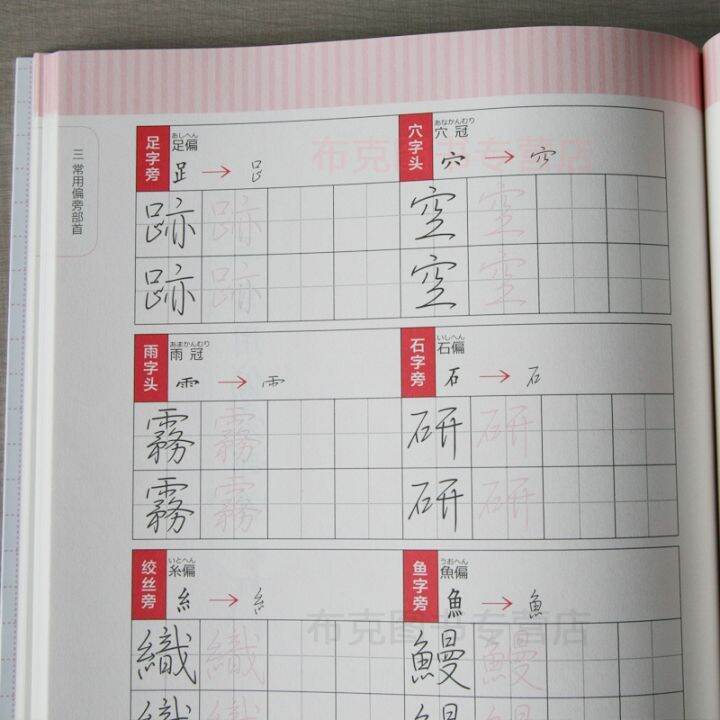 三 常用偏旁部首
足字旁
あしへん
足偏
𧾷 → 𧾷
跡 跡
跡 跡
穴字头
あなかんむり
穴冠
穴 → 穴
空 空
空 空
雨字头
あまかんむり
雨冠
⻗ → ⻗
霧 霧
霧 霧
石字旁
いしへん
石偏
石 → 石
研 研
研 研
绞丝旁
いとへん
糸偏
糹 → 糹
織 織
織 織
鱼字旁
うおへん
魚偏
魚 → 魚
鰻 鰻
鰻 鰻
布克图书专营店
布克图书专营店